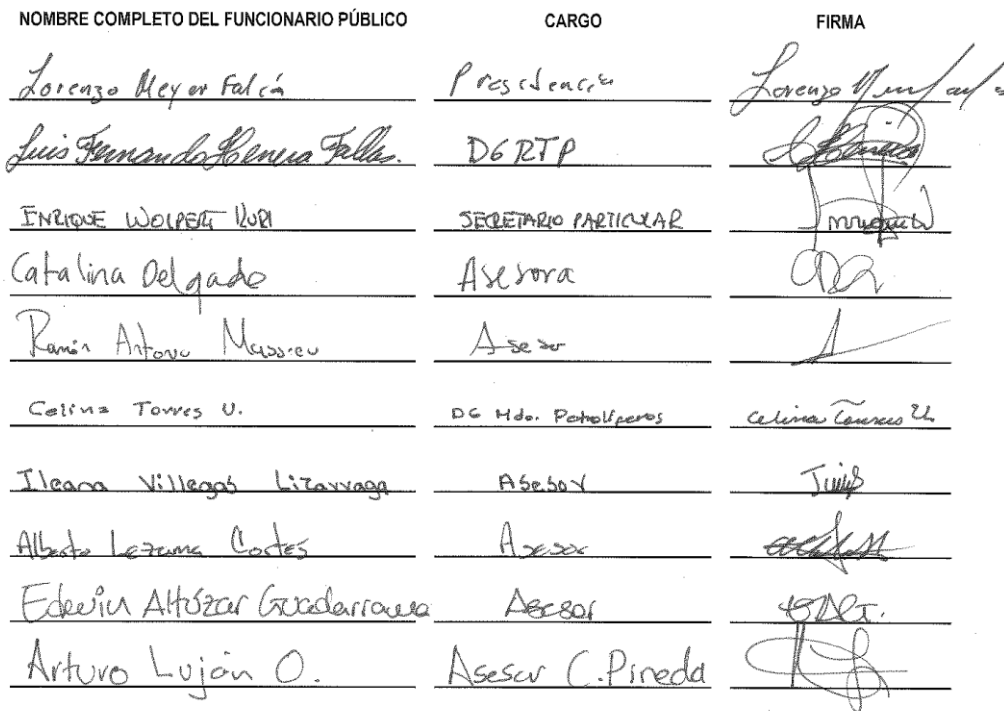 NOMBRE COMPLETO DEL FUNCIONARIO PÚBLICO CARGO FIRMA
Lorenzo Meyer Falcón Presidencia Lorenzo
Luis Fernando Herrera Fallas. DGRTP
ENRIQUE WOLPERT KURI SECRETARIO PARTICULAR
Catalina Delgado Asesora
Ramón Antonio Massieu Asesor
Celina Torres U. DG Mdo. Petrolíferos Celina Torres U
Ileana Villegas Lizarraga Asesor
Alberto Lezama Cortés Asesor
Edwin Altúzar Guadarrama Asesor
Arturo Luján O. Asesor C. Pineda